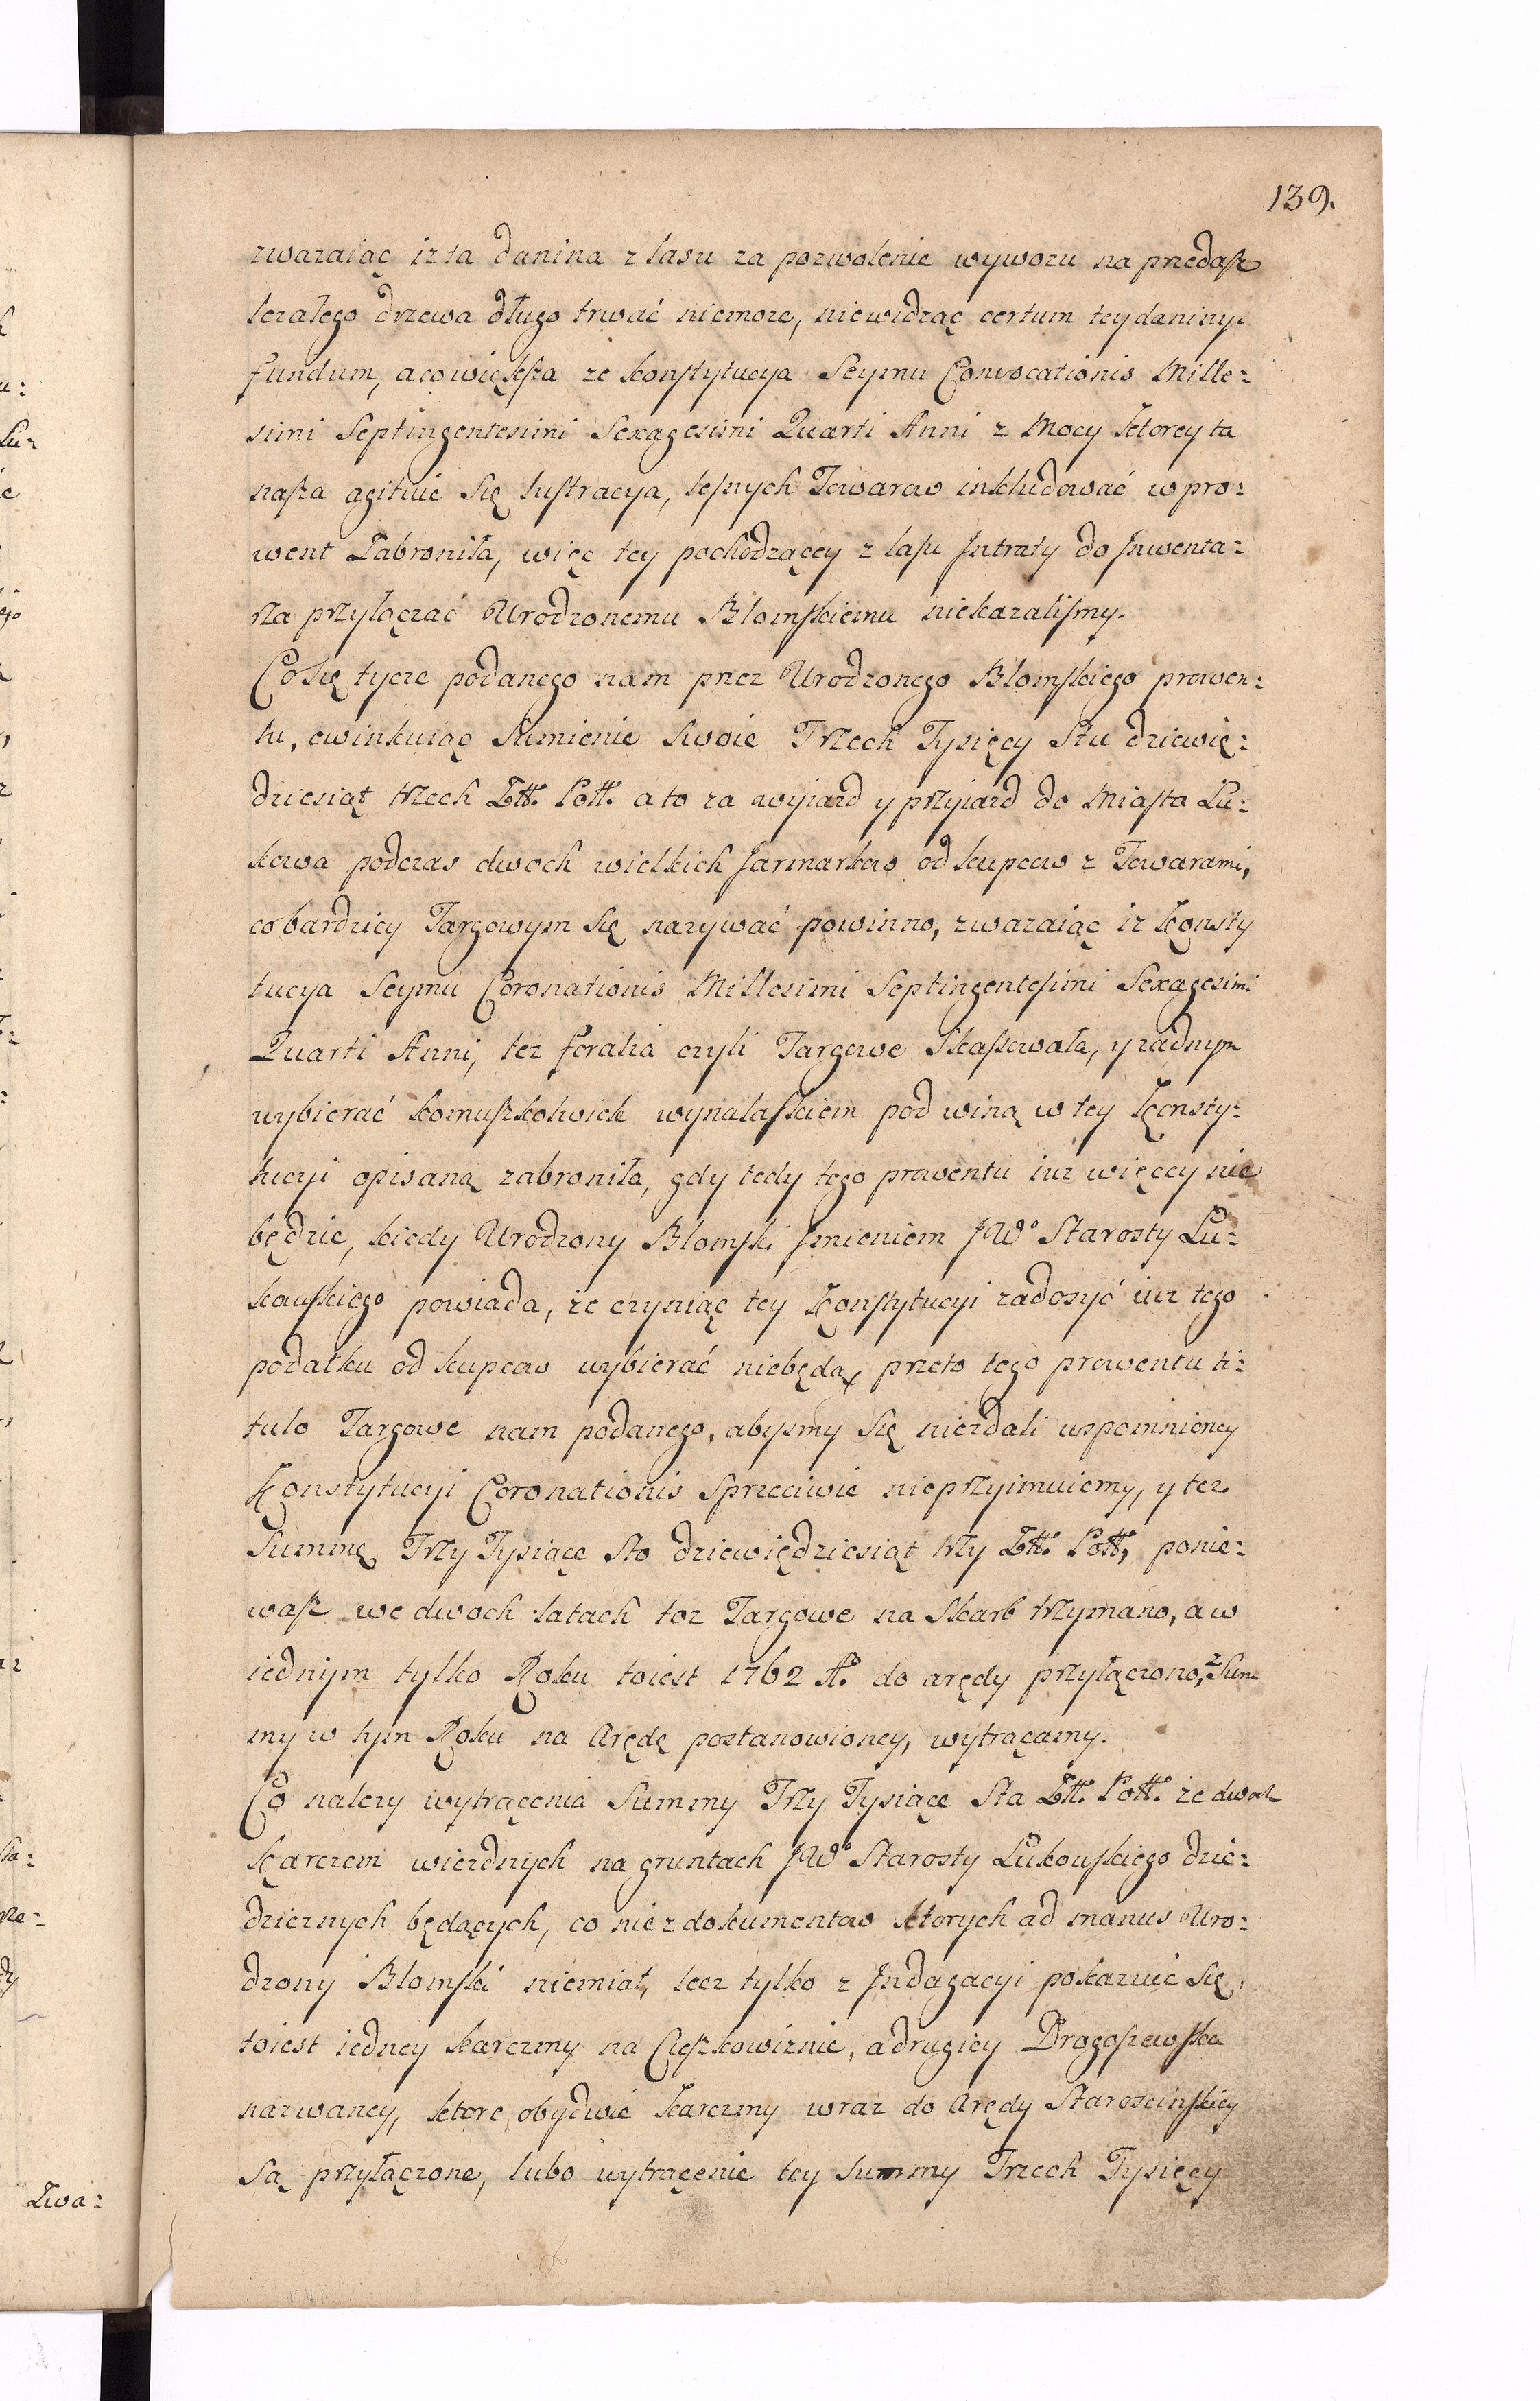 139.
zwazaiąc iz ta danina z lasu za pozwolenie wywozu na przedasz
lezałego drzewa długo trwać niemoze, niewidząc certum tey daniny
fundum, a cowiększa ze konstytucya Seymu Convocationis Mille:
simi Septingentesimi Sexagesimi Quarti Anni z Mocy ktorey ta
nasza agituie się lustracya, lesnych Towarow inkludować w pro:
went Zabroniła, więc tey pochodzącey z lasu Jntraty do Jnwenta:
rza przyłączać Urodzonemu Blomskiemu niekazalismy.
Co się tycze podanego nam przez Urodzonego Blomskiego prowen:
tu, ewinkuiąc Sumienie Swoie Trzech Tysięcy Stu dziewię:
dziesiąt trzech Złł. Poll. a to za wyiazd y przyiazd do Miasta Lu:
kowa podczas dwoch wielkich Jarmarkow od kupcow z Towarami,
co bardziey Targowym się nazywać powinno, zwazaiąc iz Konsty
tucya Seymu Coronationis Millesimi Septingentesimi Sexagesimi
Quarti Anni, tez foralia czyli Targowe Skasowała, y zadnym
wybierać komuszkolwiek wynalaskiem pod winą w tey Konsty:
tucyi opisaną zabroniła, gdy tedy tego prowentu iuz więcey nie
będzie, kiedy Urodzony Blomski Jmieniem JWo Starosty Lu:
kowskiego powiada, ze czyniąc tey Konstytucyi zadosyć iuz tego
podatku od kupcow wybierać niebędą, przeto tego prowentu ti:
tulo Targowe nam podanego, abysmy się niezdali wspomnioney
Konstytucyi Coronationis Sprzeciwić nieprzyimuiemy, y tez
Summę Trzy Tysiące Sto dziewiędziesiąt trzy Złł. Poll, ponie:
wasz we dwoch latach toz Targowe na Skarb trzymano, a w
iednym tylko Roku toiest 1762 Ao do arędy przyłączono, z Sum
my w tym Roku na Arędę postanowioney, wytrącamy.
Co nalezy wytrącenia Summy Trzy Tysiące Sta Złł. Poll. ze dwoch
Karczem wiezdnych na gruntach JWo Starosty Lukowskiego dzie:
dzicznych będących, co nie z dokumentow ktorych ad manus Uro:
dzony Blomski niemiał, lecz tylko z Jndagacyi pokazuie się,
toiest iedney karczmy na Cieszkowiznie, a drugiey Drogoszewska
nazwaney, ktore obydwie karczmy wraz do Arędy Staroscinskiey
Są przyłączone, lubo wytrącenie tey summy Trzech Tysięcy
Zwa: